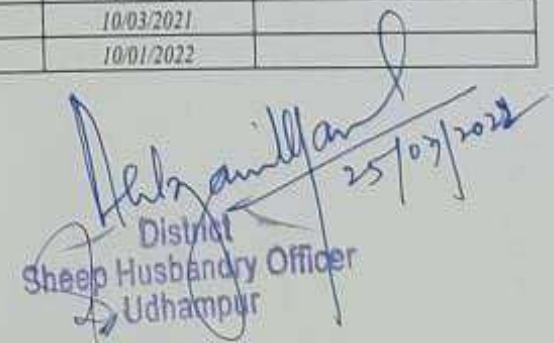 10/03/2021
10/01/2022
25/07/2022
District
Sheep Husbandry Officer
Udhampur